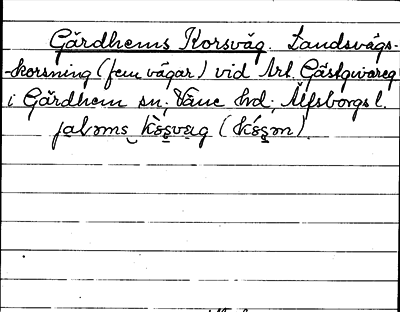 Gärdhems Korsväg. Landsvägs-
-korsning (fem vägar) vid Art. Gästgivareg
i Gärdhem sn; Väne hd; Älfsborgs l.
jaləms kòs̱vɛg (kós̱ən).